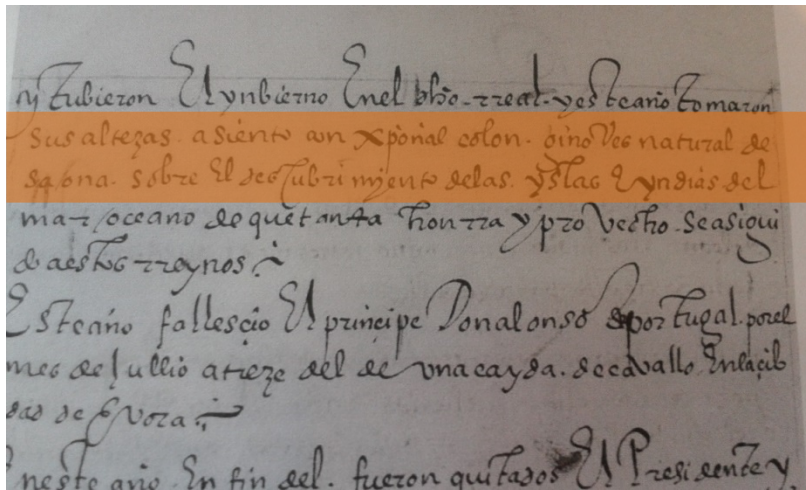 y tubieron El ynbierno Enel dho. rreal. y este año tomaron
sus altezas. asiento con xpoual colon. ginoves natural de
saona. sobre El descubrimyento delas. yslas E yndias del
mar oceano de que tanta honrra y provecho. se a sigui
do a estos rreynos
Este año fallesçio El prinçipe Don alonso de portugal. por el
mes de Jullio a treze del de una cayda. de cavallo. En la çib
dad de Evora
En este año. En fin del. fueron quitados El Presidente y